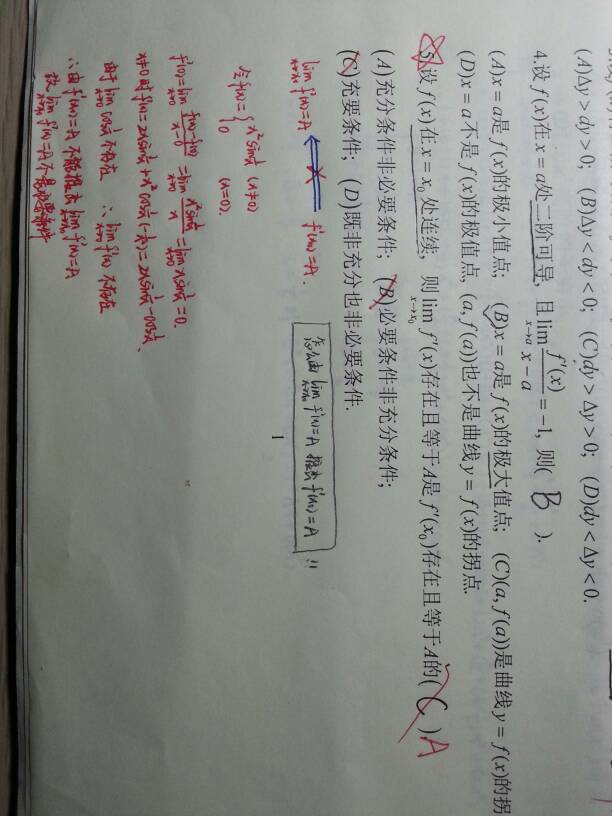 (A)Δy > dy > 0; (B)Δy < dy < 0; (C)dy > Δy > 0; (D)dy < Δy < 0.
4.设f(x)在x = a处二阶可导, 且lim x→a f'(x)/(x − a) = −1, 则( B ).
(A)x = a是f(x)的极小值点; (B)x = a是f(x)的极大值点; (C)(a, f(a))是曲线y = f(x)的拐
(D)x = a不是f(x)的极值点, (a, f(a))也不是曲线y = f(x)的拐点.
5.设f(x)在x = x₀处连续, 则lim x→x₀ f'(x)存在且等于A是f'(x₀)存在且等于A的( C ) A
(A)充分条件非必要条件; (B)必要条件非充分条件;
(C)充要条件; (D)既非充分也非必要条件.
怎么由 lim x→x₀ f'(x)=A 推出 f'(x₀)=A !!
1
lim x→x₀ f'(x)=A ⇐ f'(x₀)=A.
令f(x)= { x²sin1/x (x≠0)
0 (x=0).
f'(0)=lim x→0 (f(x)-f(0))/(x-0) =lim x→0 (x²sin1/x)/x =lim x→0 x sin1/x=0.
x≠0时 f'(x)=2x sin1/x + x² cos1/x (-1/x²)=2x sin1/x - cos1/x.
由于 lim x→0 cos1/x 不存在 ∴ lim x→0 f'(x) 不存在
∴ 由 f'(x₀)=A 不能推出 lim x→x₀ f'(x)=A
故 lim x→x₀ f'(x)=A 不是必要条件